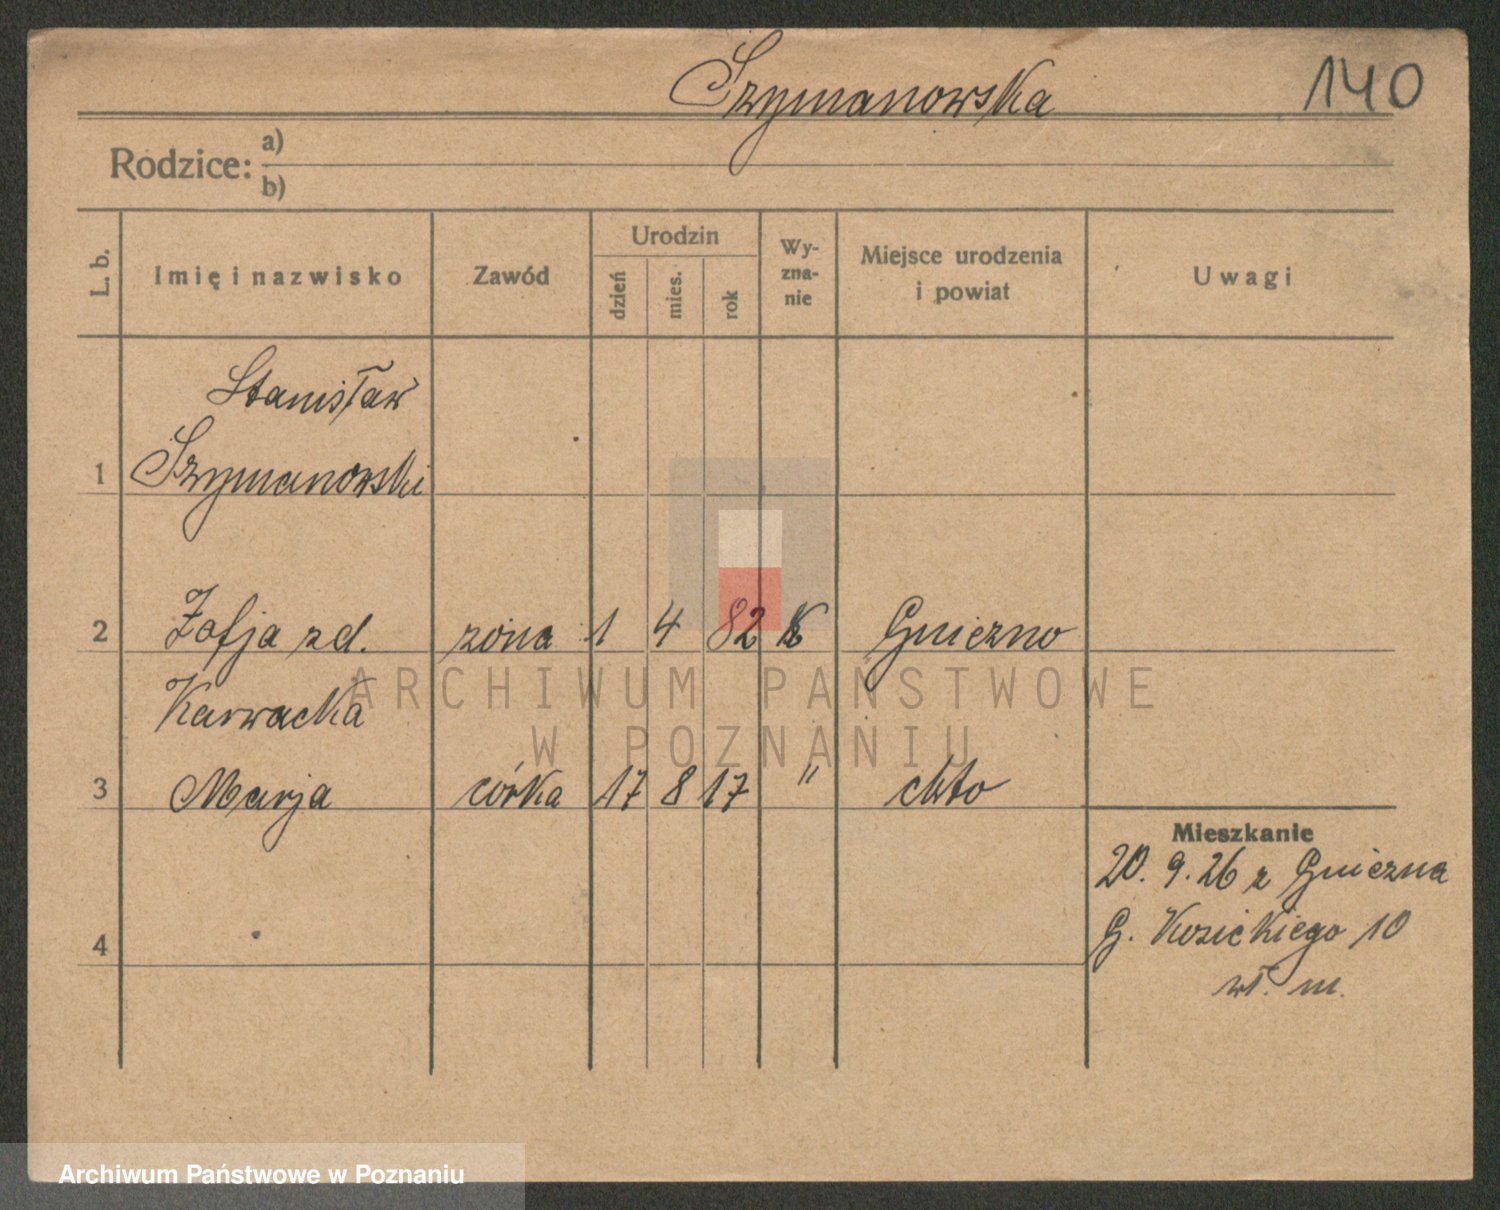 Szymanowska
140
Rodzice: a)
b)
L. b.
Imię i nazwisko
Zawód
Urodzin
dzień
mies.
rok
Wy-
zna-
nie
Miejsce urodzenia
i powiat
Uwagi
Stanisław
1 Szymanowski
2 Zofja zd. żona 1 4 82 K Gniezno
Karwacka
3 Marja córka 17 8 17 " dtto
Mieszkanie
20. 9. 26 z Gniezna
G. Kosickiego 10
4
wł. m.
ARCHIWUM PAŃSTWOWE
W POZNANIU
Archiwum Państwowe w Poznaniu